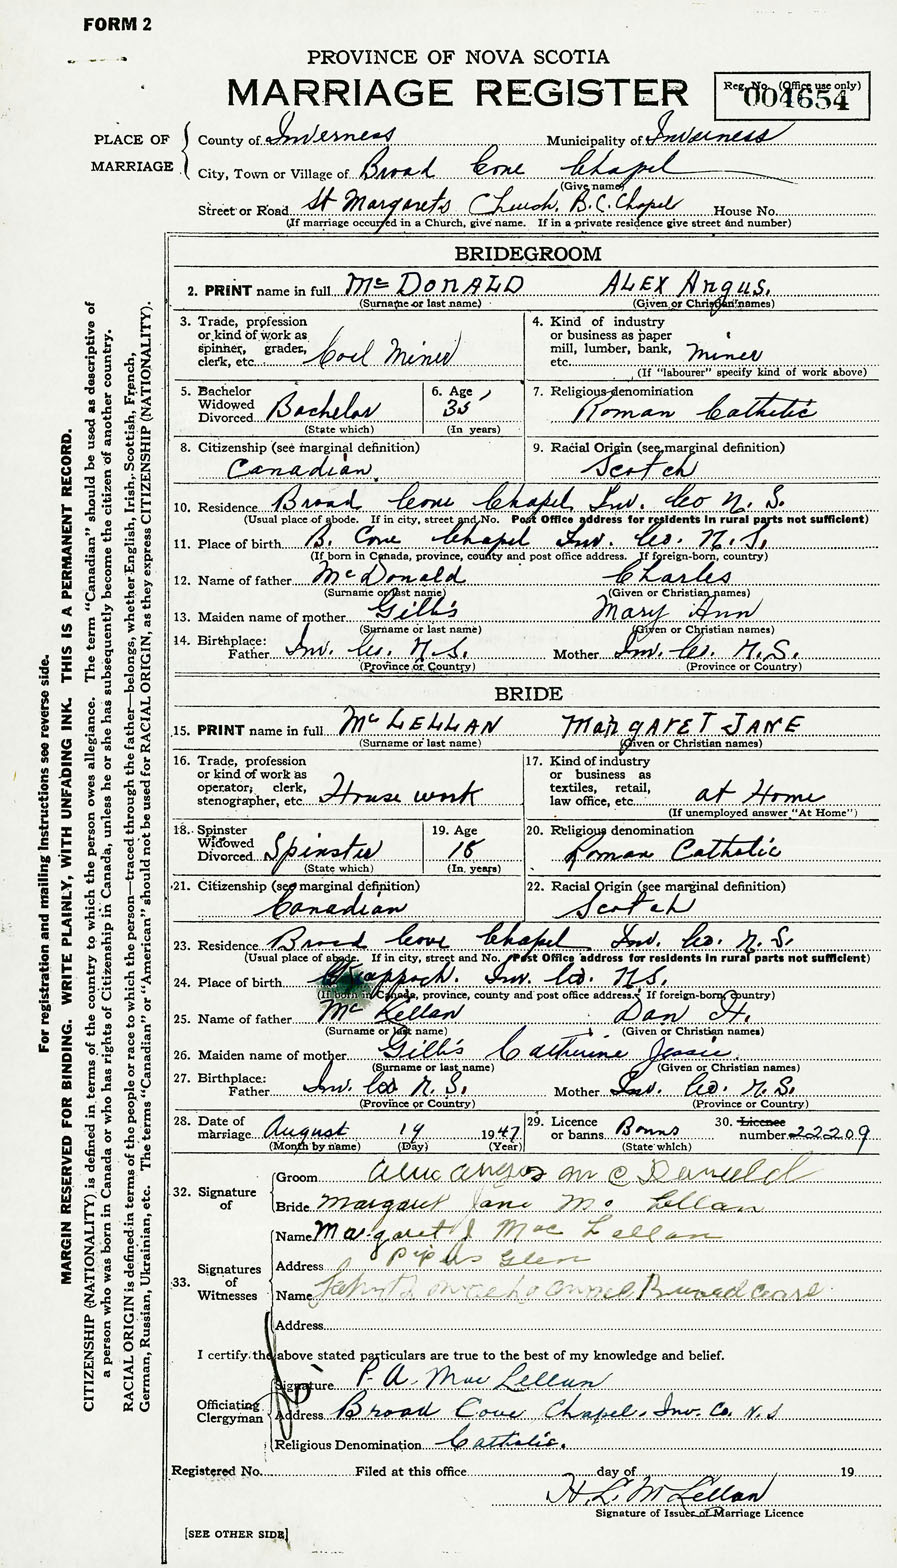 FORM 2
PROVINCE OF NOVA SCOTIA
MARRIAGE REGISTER
Reg. No. (Office use only)
004654
PLACE OF MARRIAGE
County of Inverness Municipality of Inverness
City, Town or Village of Broad Cove Chapel
(Give name)
Street or Road St Margarets Church, B.C. Chapel House No.
(If marriage occurred in a Church, give name. If in a private residence give street and number)
BRIDEGROOM
2. PRINT name in full McDONALD ALEX Angus.
(Surname or last name) (Given or Christian names)
3. Trade, profession or kind of work as spinner, grader, clerk, etc. Coal Miner
4. Kind of industry or business as paper mill, lumber, bank, etc. miner
(If "labourer" specify kind of work above)
5. Bachelor Widowed Divorced Bachelor
(State which)
6. Age 35
(In years)
7. Religious denomination
Roman Catholic
8. Citizenship (see marginal definition)
Canadian
9. Racial Origin (see marginal definition)
Scotch
10. Residence Broad Cove Chapel Inv. Co N.S.
(Usual place of abode. If in city, street and No. Post Office address for residents in rural parts not sufficient)
11. Place of birth B. Cove Chapel Inv. Co. N.S.
(If born in Canada, province, county and post office address. If foreign-born, country)
12. Name of father McDonald Charles
(Surname or last name) (Given or Christian names)
13. Maiden name of mother Gillis Mary Ann
(Surname or last name) (Given or Christian names)
14. Birthplace:
Father Inv. Co. N.S. Mother Inv. Co. N.S.
(Province or Country) (Province or Country)
BRIDE
15. PRINT name in full McLELLAN MARGARET JANE
(Surname or last name) (Given or Christian names)
16. Trade, profession or kind of work as operator, clerk, stenographer, etc. House work
17. Kind of industry or business as textiles, retail, law office, etc. at Home
(If unemployed answer "At Home")
18. Spinster Widowed Divorced Spinster
(State which)
19. Age 18
(In years)
20. Religious denomination
Roman Catholic
21. Citizenship (see marginal definition)
Canadian
22. Racial Origin (see marginal definition)
Scotch
23. Residence Broad Cove Chapel Inv. Co. N.S.
(Usual place of abode. If in city, street and No. Post Office address for residents in rural parts not sufficient)
24. Place of birth Inv. Co. N.S.
(If born in Canada, province, county and post office address. If foreign-born, country)
25. Name of father McLellan Dan H.
(Surname or last name) (Given or Christian names)
26. Maiden name of mother Gillis Catherine Jessie
(Surname or last name) (Given or Christian names)
27. Birthplace:
Father Inv. Co N.S. Mother Inv. Co. N.S.
(Province or Country) (Province or Country)
28. Date of marriage August 19 1947
(Month by name) (Day) (Year)
29. Licence or banns Banns
(State which)
30. Licence number 22209
32. Signature of
Groom Angus McDonald
Bride Margaret Jane Mc Lellan
33. Signatures of Witnesses
Name Margaret J Mac Lellan
Address Pipers Glen
Name
Address
I certify the above stated particulars are true to the best of my knowledge and belief.
Officiating Clergyman
Signature P. A. MacLellan
Address Broad Cove Chapel, Inv. Co. N.S
Religious Denomination Catholic.
Registered No. Filed at this office day of 19
H. L. McLellan
Signature of Issuer of Marriage Licence
[SEE OTHER SIDE]
For registration and mailing instructions see reverse side.
MARGIN RESERVED FOR BINDING. WRITE PLAINLY, WITH UNFADING INK. THIS IS A PERMANENT RECORD.
CITIZENSHIP (NATIONALITY) is defined in terms of the country to which the person owes allegiance. The term "Canadian" should be used as descriptive of
a person who was born in Canada or who has rights of Citizenship in Canada, unless he or she has subsequently become the citizen of another country.
RACIAL ORIGIN is defined in terms of the people or race to which the person—traced through the father—belongs, whether English, Irish, Scottish, French,
German, Russian, Ukrainian, etc. The terms "Canadian" or "American" should not be used for RACIAL ORIGIN, as they express CITIZENSHIP (NATIONALITY).